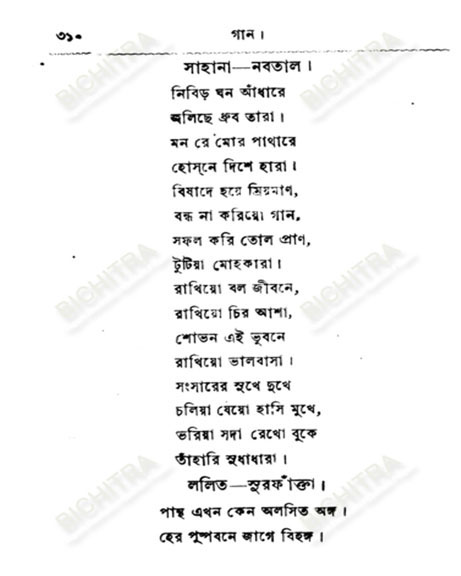 ৩১০ গান।
সাহানা—নবতাল।
নিবিড় ঘন আঁধারে
জ্বলিছে ধ্রুব তারা।
মন রে মোর পাথারে
হোস্‌নে দিশে হারা।
বিষাদে হয়ে ম্রিয়মাণ,
বন্ধ না করিয়ো গান,
সফল করি তোল প্রাণ,
টুটিয়া মোহকারা।
রাখিয়ো বল জীবনে,
রাখিয়ো চির আশা,
শোভন এই ভুবনে
রাখিয়ো ভালবাসা।
সংসারের সুখে দুখে
চলিয়া যেয়ো হাসি মুখে,
ভরিয়া সদা রেখো বুকে
তাঁহারি সুধাধারা।
ললিত—সুরফাঁক্তা।
পান্থ এখন কেন অলসিত অঙ্গ।
হের পুষ্পবনে জাগে বিহঙ্গ।
BICHITRA
BICHITRA
BICHITRA
BICHITRA
BICHITRA
BICHITRA